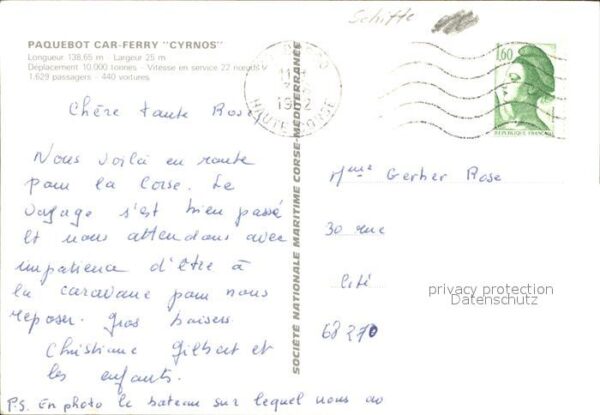 Schiffe
PAQUEBOT CAR-FERRY "CYRNOS"
Longueur 138,65 m - Largeur 25 m
Déplacement 10.000 tonnes - Vitesse en service 22 nœuds
1.629 passagers - 440 voitures
HAUTE CORSE
1,60
REPUBLIQUE FRANÇAISE
Chère tante Rose,
Nous voilà en route
pour la Corse. Le
voyage s'est bien passé
Et nous attendons avec
impatience d'être à
la caravane pour nous
reposer. Gros baisers
Christiane Gilbert et
les enfants.
P.S. En photo le bateau sur lequel nous
SOCIÉTÉ NATIONALE MARITIME CORSE-MÉDITERRANÉE
Mme Gerber Rose
30 rue
Cité
68270
privacy protection
Datenschutz